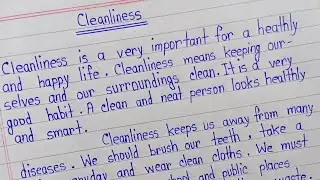 Cleanliness
Cleanliness is a very important for a heathly
and happy life. Cleanliness means keeping our-
selves and our surroundings clean. It is a very
good habit. A clean and neat person looks heathly
and smart.
Cleanliness keeps us away from many
diseases. We should brush our teeth, take a
everyday and wear clean cloths. We must
and public places
waste.